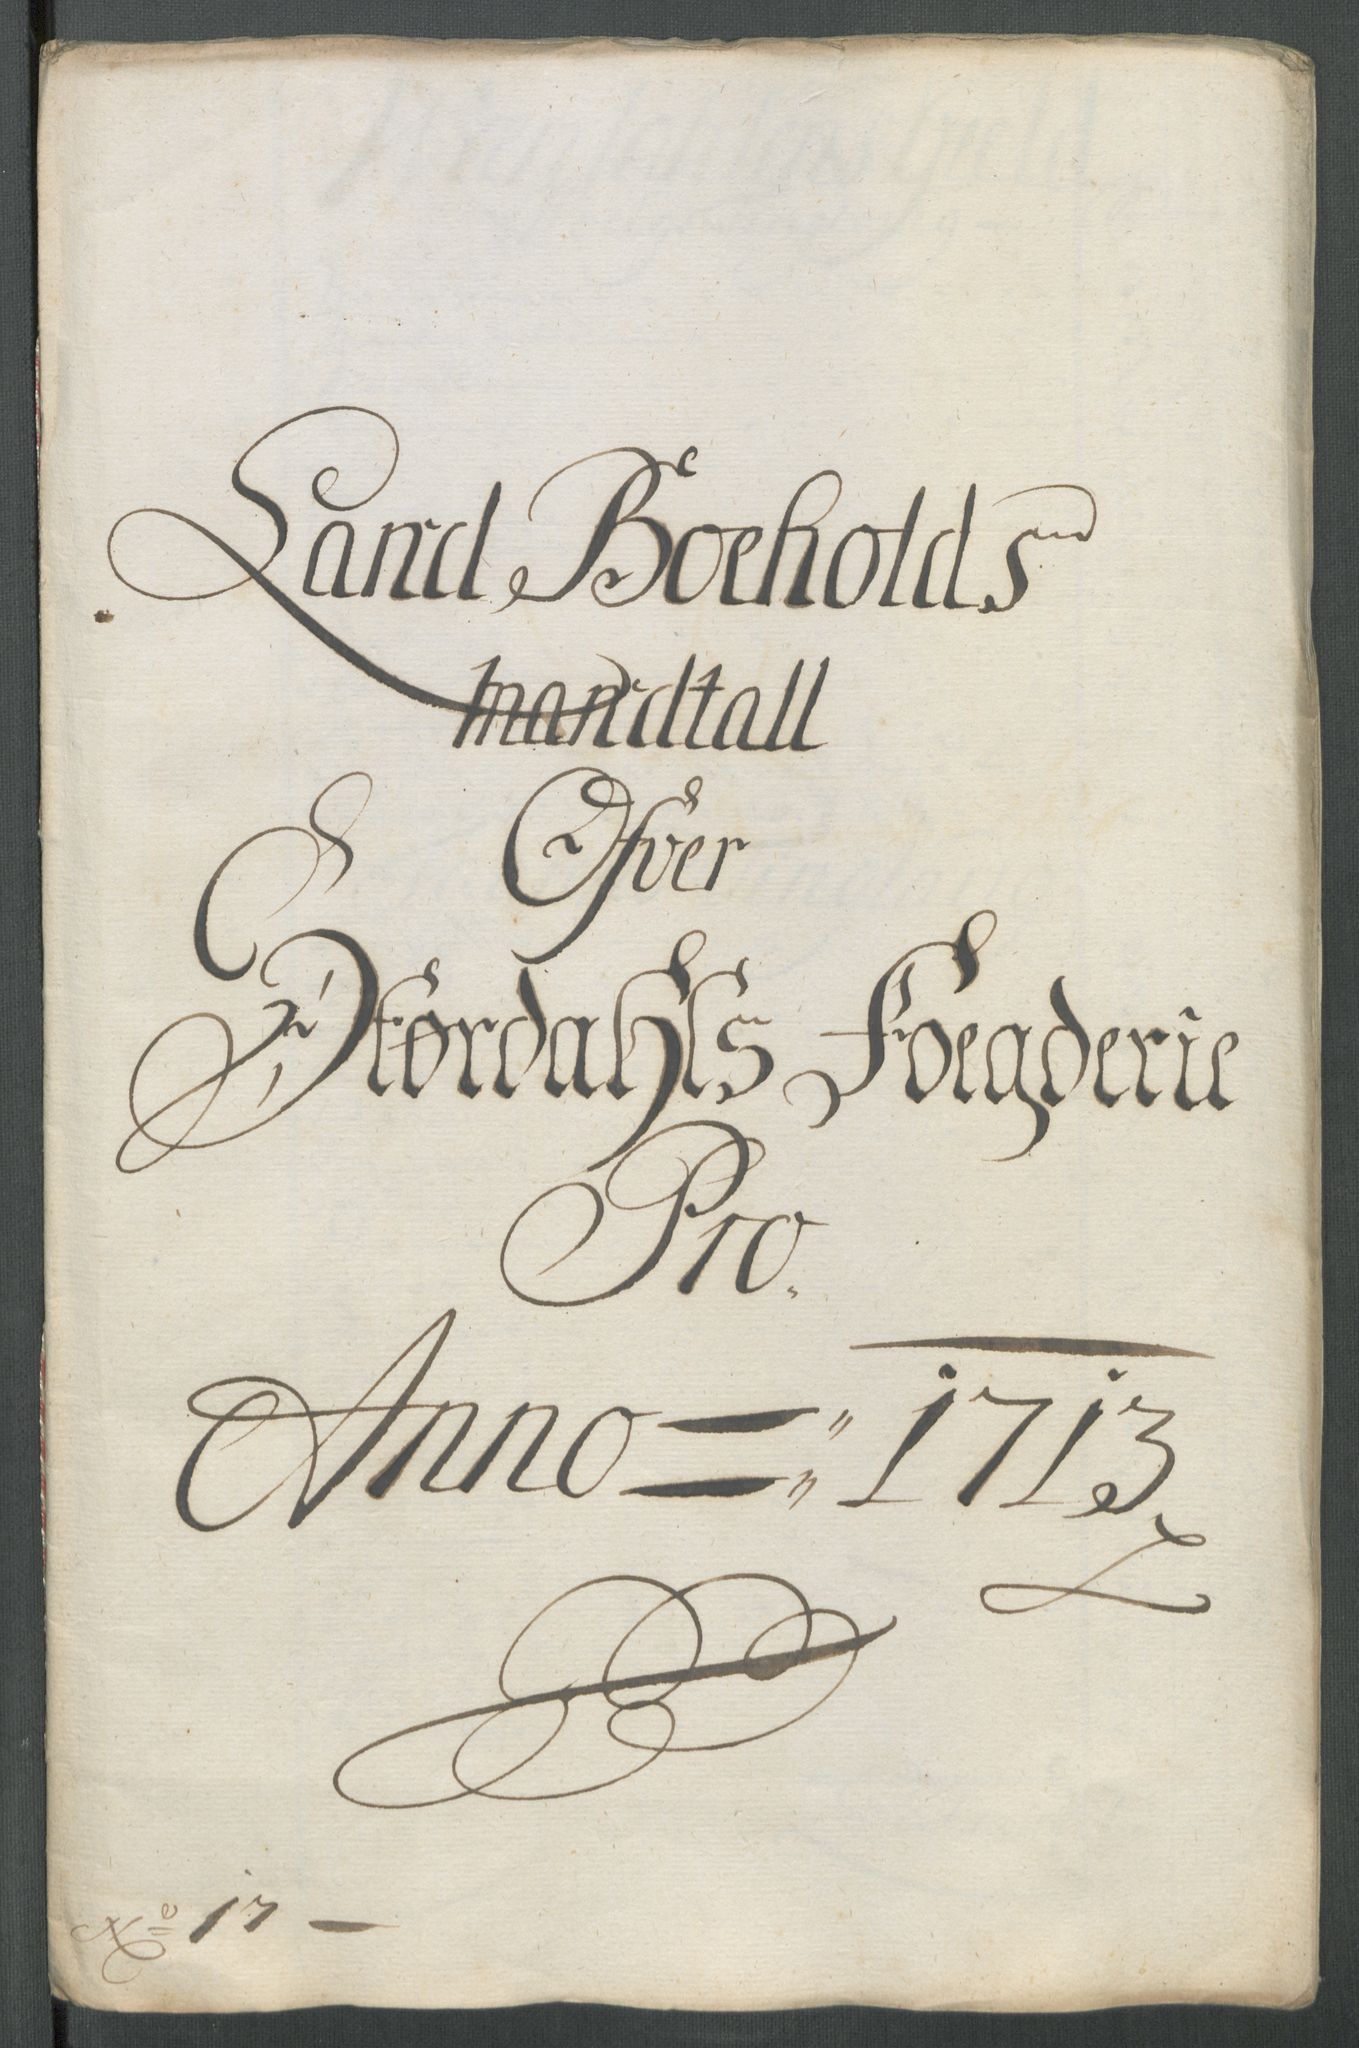 Land Boeholds
mandtall
Ofver
Størdahls Foegderie
Pro.
Anno = 1713
No 17 —